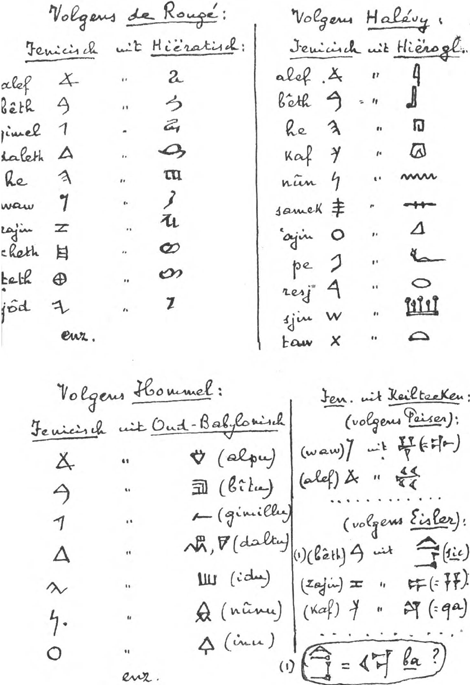 Volgens de Rougé:
Fenicisch uit Hiëratisch:
alef "
bêth "
gimel "
daleth "
he "
waw "
zajin "
cheth "
teth "
jôd "
enz.
Volgens Halévy:
Fenicisch uit Hiërogl.
alef "
bêth "
he "
kaf "
nûn "
samek "
'ajin "
pe "
resj "
sjin "
taw "
Volgens Hommel:
Fenicisch uit Oud-Babylonisch
" (alpu)
" (bîtu)
" (gimillu)
" (daltu)
" (idu)
" (nûnu)
" (inu)
enz.
Fen. uit Keilteeken:
(volgens Peiser):
(waw) uit
(alef) "
(volgens Eisler):
(1) (bêth) uit (sic)
(zajin) "
(kaf) " (= qa)
(1) = ba ?